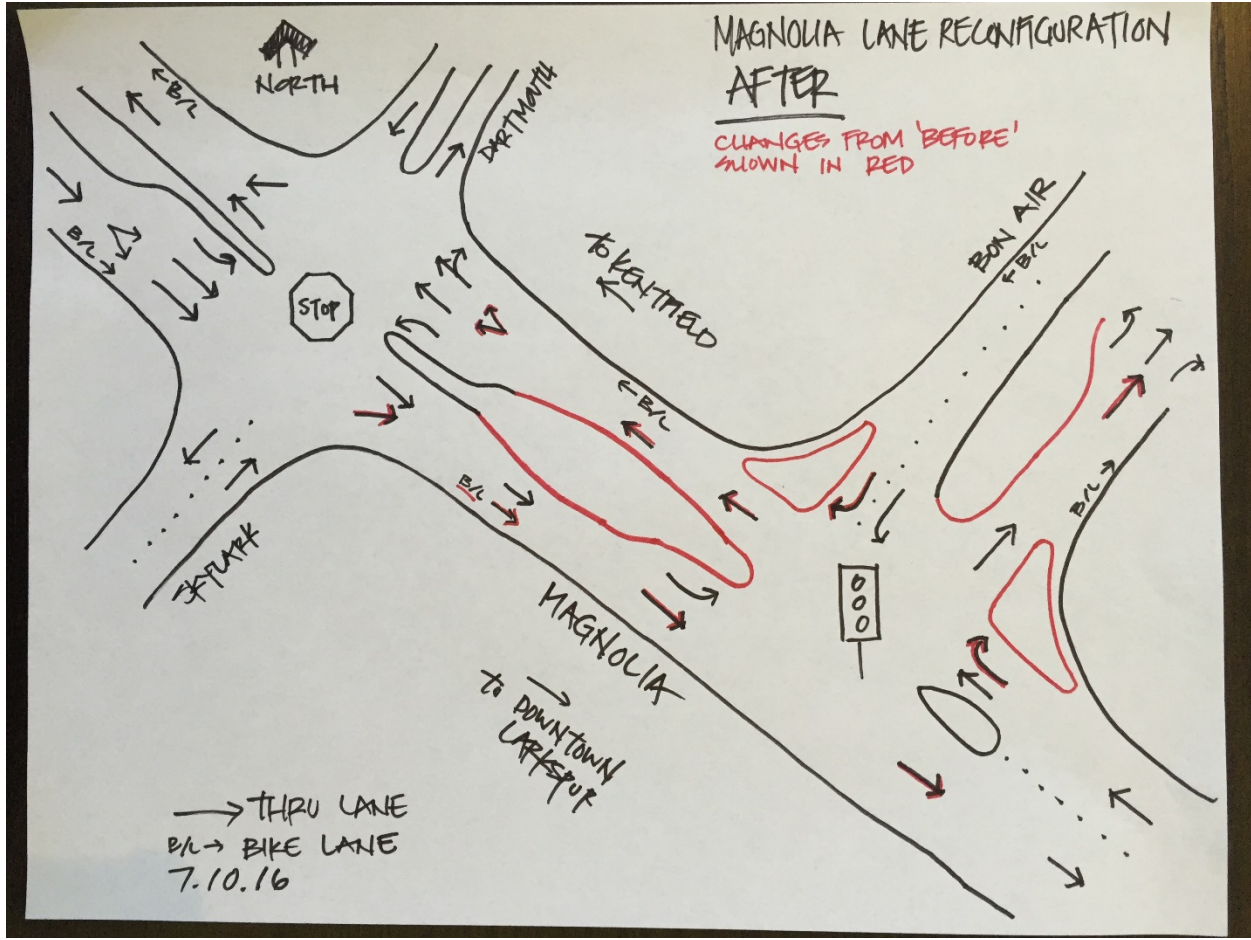 MAGNOLIA LANE RECONFIGURATION
AFTER
CHANGES FROM 'BEFORE'
SHOWN IN RED
NORTH
B/L
DARTMOUTH
B/L
STOP
to KENTFIELD
BON AIR
B/L
B/L
B/L
B/L
SKYLARK
MAGNOLIA
to DOWNTOWN
LARKSPUR
THRU LANE
B/L → BIKE LANE
7.10.16